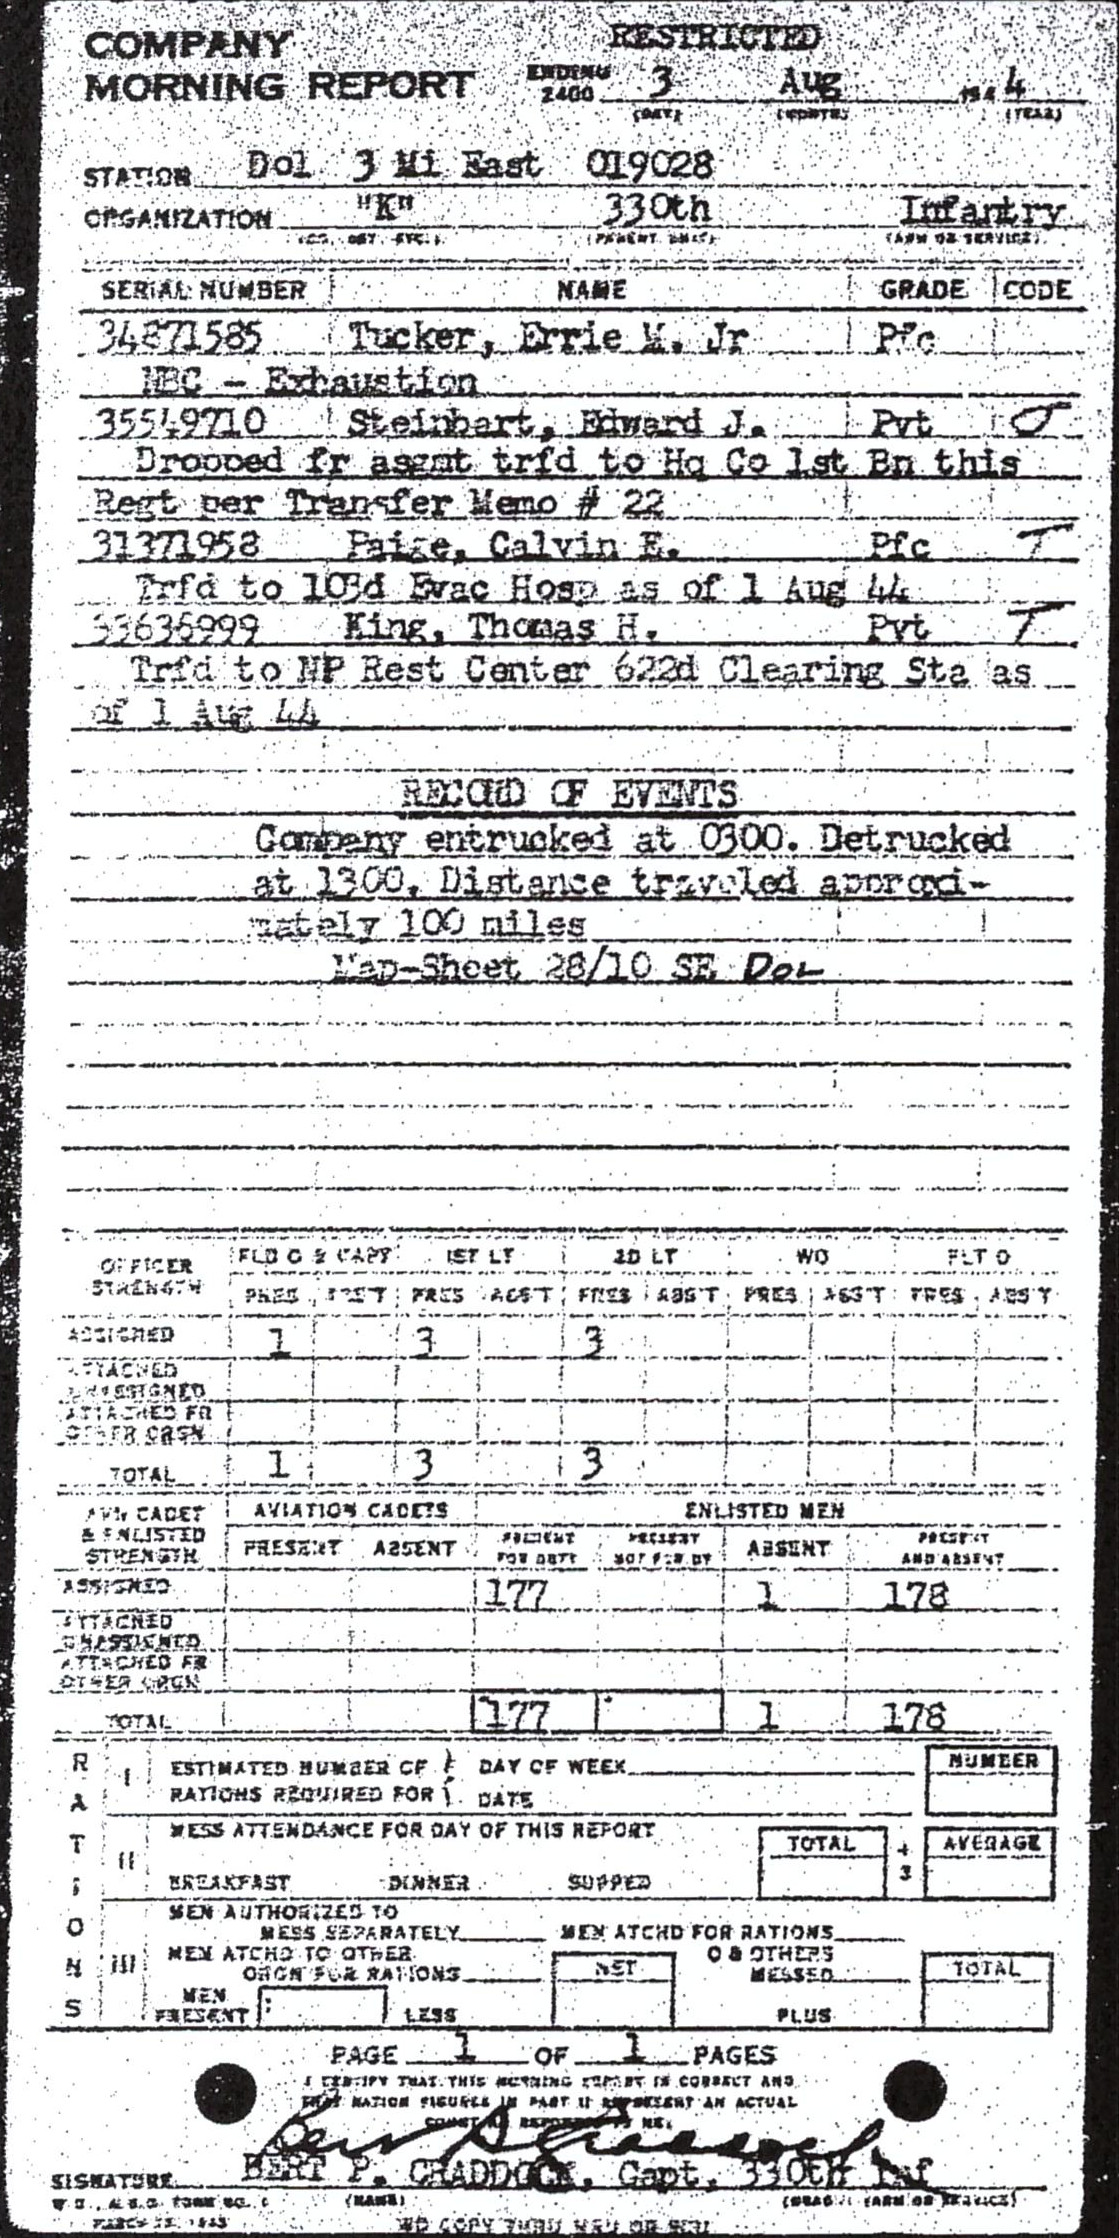 COMPANY RESTRICTED
MORNING REPORT ENDING 2400 3 Aug 194 4
(DAY) (MONTH) (YEAR)
STATION Dol 3 Mi East 019028
ORGANIZATION "K" 330th Infantry
(CO, BTY, ETC.) (PARENT UNIT) (ARM OR SERVICE)
SERIAL NUMBER NAME GRADE CODE
34871585 Tucker, Errie M. Jr Pfc
NBC - Exhaustion
35549710 Steinhart, Edward J. Pvt
Dropped fr asgmt trfd to Hq Co 1st Bn this
Regt per Transfer Memo # 22
31371958 Paige, Calvin E. Pfc T
Trfd to 103d Evac Hosp as of 1 Aug 44
33636999 King, Thomas H. Pvt T
Trfd to NP Rest Center 622d Clearing Sta as
of 1 Aug 44
RECORD OF EVENTS
Company entrucked at 0300. Detrucked
at 1300. Distance traveled approxi-
mately 100 miles
Map-Sheet 28/10 SE DOL
OFFICER STRENGTH FLD O & CAPT 1ST LT 2D LT WO FLT O
PRES ABS'T PRES ABS'T PRES ABS'T PRES ABS'T PRES ABS'T
ASSIGNED 1 3 3
ATTACHED UNASSIGNED
ATTACHED FR OTHER ORGN
TOTAL 1 3 3
AVN CADET & ENLISTED STRENGTH AVIATION CADETS ENLISTED MEN
PRESENT ABSENT PRESENT FOR DUTY PRESENT NOT FOR DY ABSENT PRESENT AND ABSENT
ASSIGNED 177 1 178
ATTACHED UNASSIGNED
ATTACHED FR OTHER ORGN
TOTAL 177 1 178
RATIONS
I ESTIMATED NUMBER OF DAY OF WEEK NUMBER
RATIONS REQUIRED FOR DATE
II MESS ATTENDANCE FOR DAY OF THIS REPORT TOTAL ÷ 3 AVERAGE
BREAKFAST DINNER SUPPER
III MEN AUTHORIZED TO
MESS SEPARATELY MEN ATCHD FOR RATIONS
MEN ATCHD TO OTHER ORGN FOR RATIONS NET O & OTHERS MESSED TOTAL
MEN PRESENT LESS PLUS
PAGE 1 OF 1 PAGES
I CERTIFY THAT THIS MORNING REPORT IS CORRECT AND
THAT RATION FIGURES IN PART II REPRESENT AN ACTUAL
COUNT AS REPORTED TO ME.
SIGNATURE BERT P. CRADDOCK, Capt, 330th Inf
W.D., A.G.O. FORM NO. 1 (NAME) (GRADE) (ARM OR SERVICE)
MARCH 23, 1943